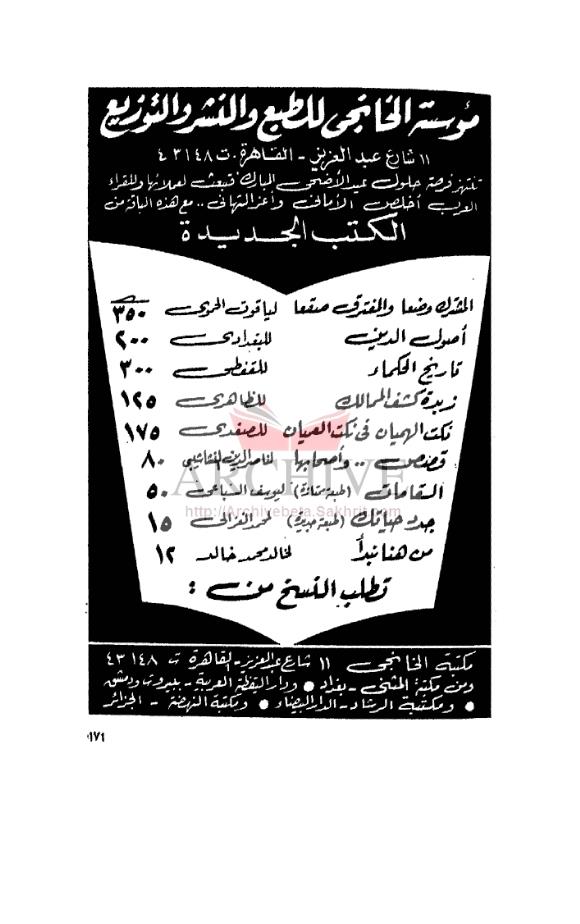 مؤسسة الخانجى للطبع والنشر والتوزيع
١١ شارع عبد العزيز - القاهرة . ت ٤٣١٤٨
تنتهز فرصة حلول عيد الأضحى المبارك فتبعث لعملائها والقراء
العرب أخلص الأمانى وأعز التهانى .. مع هذه الباقة من
الكتب الجديدة
المشترك وضعا والمفترق صقعا لياقوت الحموى ٣٥٠
أصول الدين للبغدادى ٢٠٠
تاريخ الحكماء للقفطى ٣٠٠
زبدة كشف الممالك للظاهرى ١٢٥
نكت الهميان فى نكت العميان للصفدى ١٧٥
قصص .. وأصحابها لناصر الدين النشاشيبى ٨٠
السقامات (طبعة ممتازة) ليوسف السباعى ٥٠
جدد حياتك (طبعة جديدة) لمحمد الغزالى ١٥
من هنا نبدأ لخالد محمد خالد ١٢
تطلب النسخ من :
مكتبة الخانجى ١١ شارع عبد العزيز - القاهرة ت ٤٣١٤٨
ومن مكتبة المثنى - بغداد • ودار اليقظة العربية - ببيروت ودمشق
• ومكتبة الرشاد - الدار البيضاء • ومكتبة النهضة - الجزائر
١٧١
ARCHIVE
http://Archivebeta.Sakhrit.com